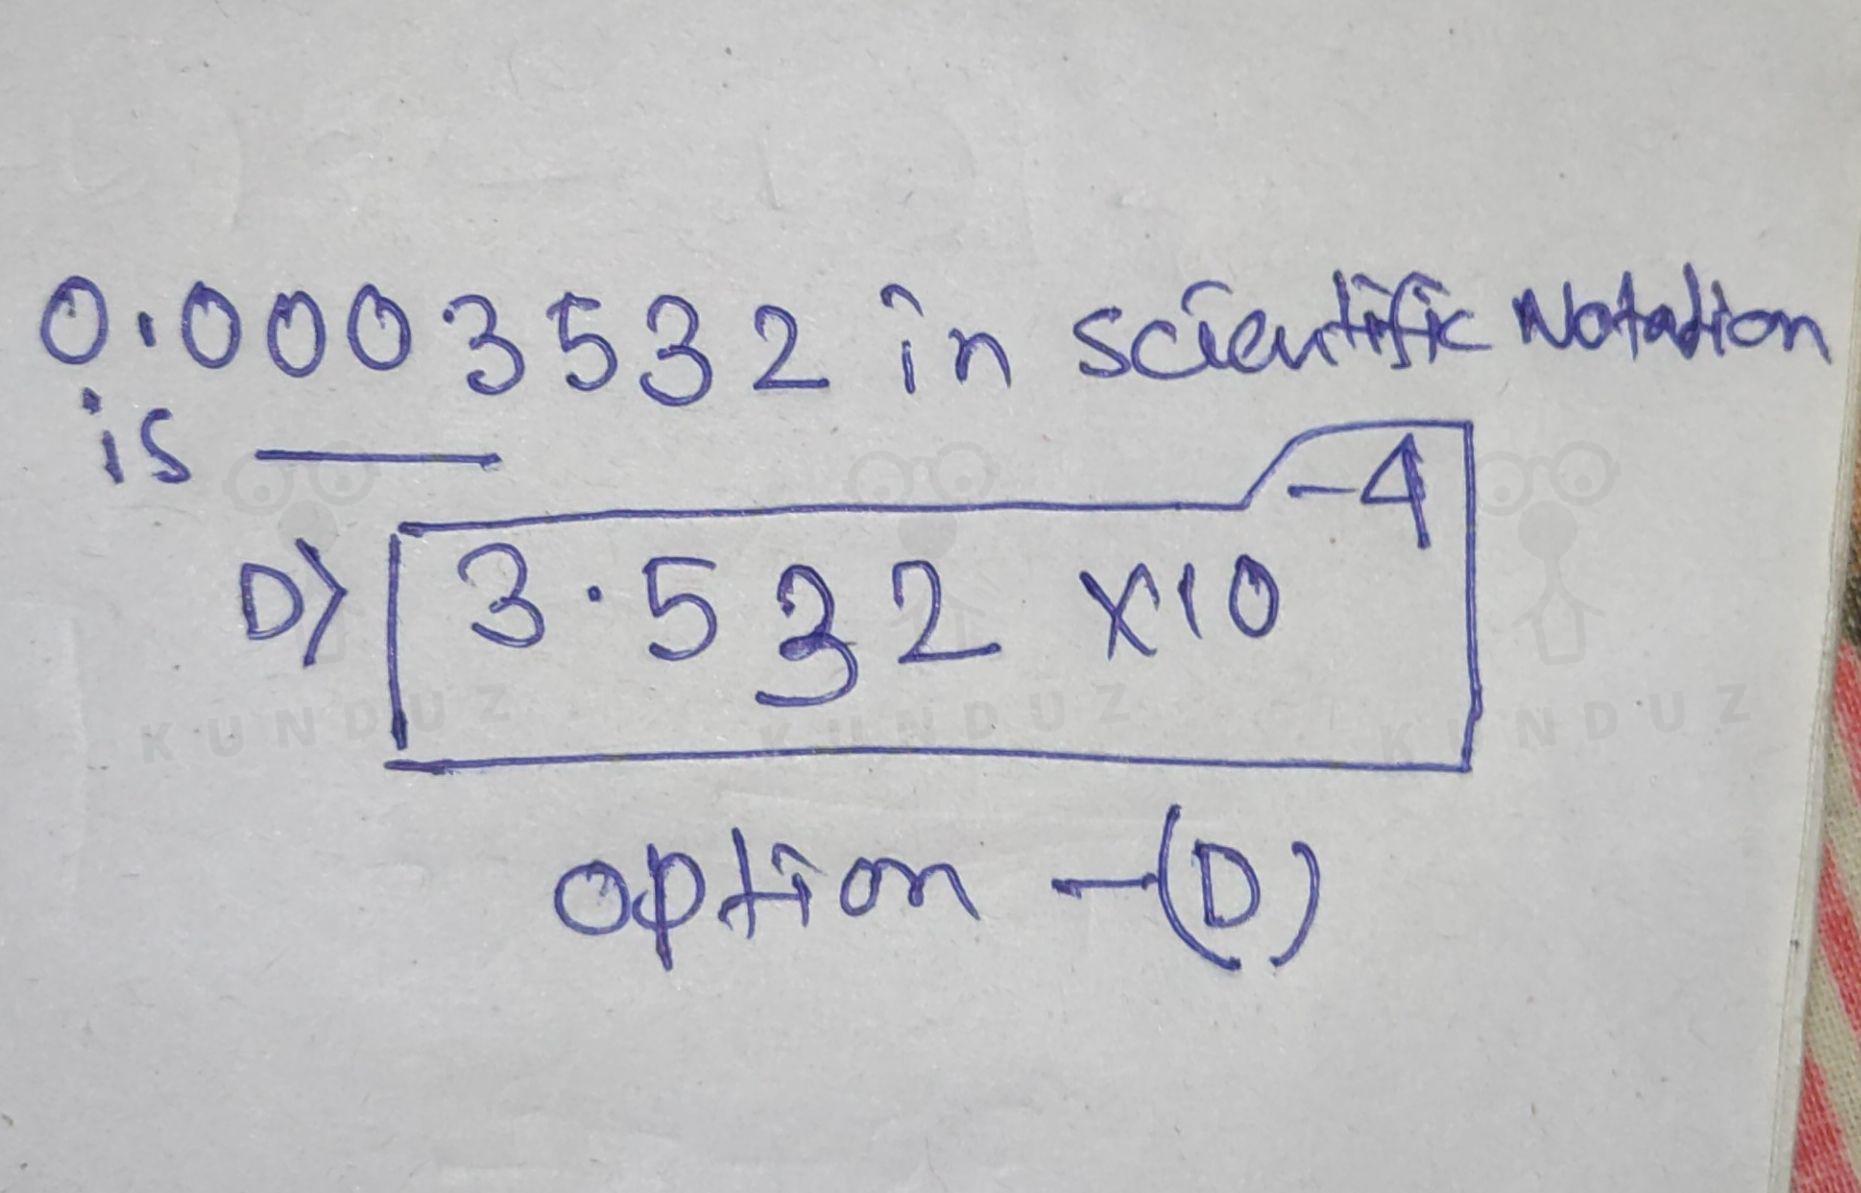 0.0003532 in scientific Notation
is ____
D) 3.532 ×10⁻⁴
option -(D)
KUNDUZ KUNDUZ KUNDUZ